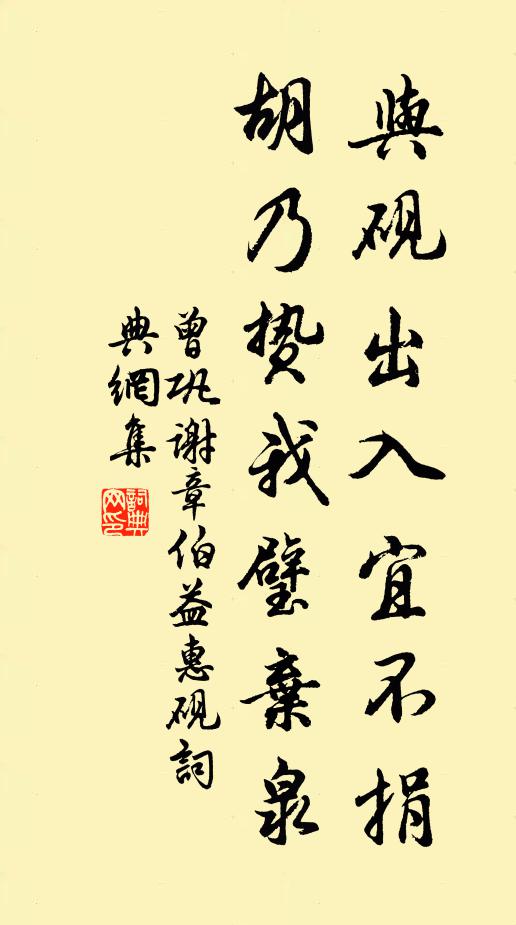 與硯出入宜不捐
胡乃贄我璧棄泉
曾巩谢章伯益惠硯詞
典網集
詞典网印